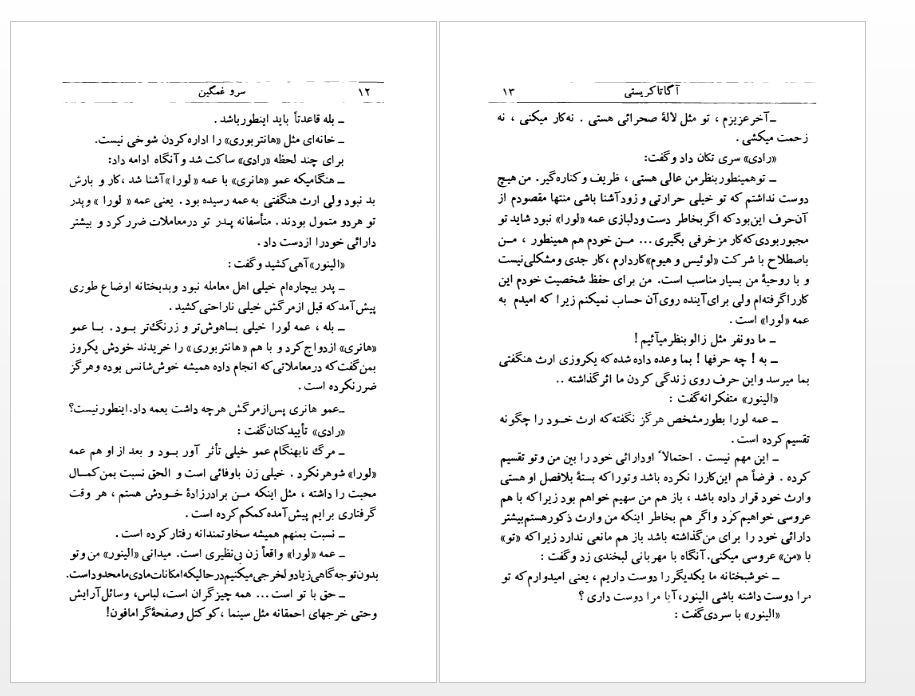 ۱۲ سرو غمگین
ــ بله قاعدتاً باید اینطورباشد .
ــ خانه‌ای مثل «هانتربوری» را اداره‌کردن شوخی نیست.
برای چند لحظه «رادی» ساکت شد و آنگاه ادامه داد:
ــ هنگامیکه عمو «هانری» با عمه «لورا» آشنا شد ، کار و بارش
بد نبود ولی ارث هنگفتی به‌عمه رسیده بود . یعنی عمه « لورا » و پدر
تو هردو متمول بودند . متأسفانه پدر تو درمعاملات ضررکرد و بیشتر
دارائی خودرا ازدست داد .
«الینور» آهی‌کشید و گفت :
ــ پدر بیچاره‌ام خیلی اهل معامله نبود و بدبختانه اوضاع طوری
پیش‌آمدکه قبل ازمرگش خیلی ناراحتی‌کشید .
ــ بله ، عمه لورا خیلی باهوش‌تر و زرنگ‌تر بود . با عمو
«هانری» ازدواج‌کرد و با هم «هانتربوری » را خریدند خودش یکروز
بمن‌گفت‌که درمعاملاتی‌که انجام داده همیشه خوش‌شانس بوده وهرگز
ضررنکرده است .
ــ عمو هانری پس‌ازمرگش هرچه داشت بعمه داد. اینطورنیست؟
«رادی» تأییدکنان‌گفت :
ــ مرگ نابهنگام عمو خیلی تأثر آور بود و بعد از او هم عمه
«لورا» شوهرنکرد . خیلی زن باوفائی است و الحق نسبت بمن‌کمال
محبت را داشته ، مثل اینکه من برادرزادهٔ خودش هستم ، هر وقت
گرفتاری برایم پیش‌آمده‌کمکم‌کرده است .
ــ نسبت بمنهم همیشه سخاوتمندانه رفتارکرده است .
ــ عمه «لورا» واقعاً زن بی‌نظیری است. میدانی «الینور» من‌وتو
بدون‌توجه‌گاهی‌زیادولخرجی‌میکنیم‌درحالیکه‌امکانات‌مادی‌مامحدوداست.
ــ حق با تو است ... همه چیزگران است، لباس، وسائل‌آرایش
وحتی خرجهای احمقانه مثل سینما ، کوکتل وصفحهٔ‌گرامافون!
آگاتاکریستی ۱۳
ــ آخرعزیزم ، تو مثل لالهٔ صحرائی هستی . نه‌کار میکنی ، نه
زحمت میکشی .
«رادی» سری تکان داد وگفت:
ــ توهمینطوربنظرمن عالی هستی ، ظریف وکناره‌گیر. من هیچ
دوست نداشتم که تو خیلی حرارتی و زودآشنا باشی منتها مقصودم از
آن‌حرف این‌بودکه اگر بخاطر دست‌ودلبازی عمه «لورا» نبود شاید تو
مجبوربودی‌که‌کار مزخرفی بگیری ... من خودم هم همینطور ، من
باصطلاح با شرکت «لوئیس و هیوم»کاردارم ، کار جدی ومشکلی‌نیست
و با روحیهٔ من بسیار مناسب است. من برای حفظ شخصیت خودم این
کارراگرفته‌ام ولی برای‌آینده روی‌آن حساب نمیکنم زیرا که امیدم به
عمه «لورا» است .
ــ ما دونفر مثل زالو بنظرمیآئیم !
ــ به ! چه حرفها ! بما وعده داده شده‌که یکروزی ارث هنگفتی
بما میرسد واین حرف روی زندگی کردن ما اثرگذاشته ..
«الینور» متفکرانه‌گفت :
ــ عمه لورا بطورمشخص هرگز نگفته‌که ارث خود را چگونه
تقسیم‌کرده است .
ــ این مهم نیست . احتمالاً اودارائی خود را بین من وتو تقسیم
کرده . فرضاً هم این‌کاررا نکرده باشد وتوراکه بستهٔ بلافصل او هستی
وارث خود قرار داده باشد ، باز هم من سهیم خواهم بود زیراکه با هم
عروسی خواهیم‌کرد واگر هم بخاطر اینکه من وارث ذکورهستم‌بیشتر
دارائی خود را برای من‌گذاشته باشد باز هم مانعی ندارد زیراکه «تو»
با «من» عروسی میکنی. آنگاه با مهربانی لبخندی زد وگفت :
ــ خوشبختانه ما یکدیگررا دوست داریم ، یعنی امیدوارم‌که تو
مرا دوست داشته باشی الینور، آیا مرا دوست داری ؟
«الینور» با سردی‌گفت :